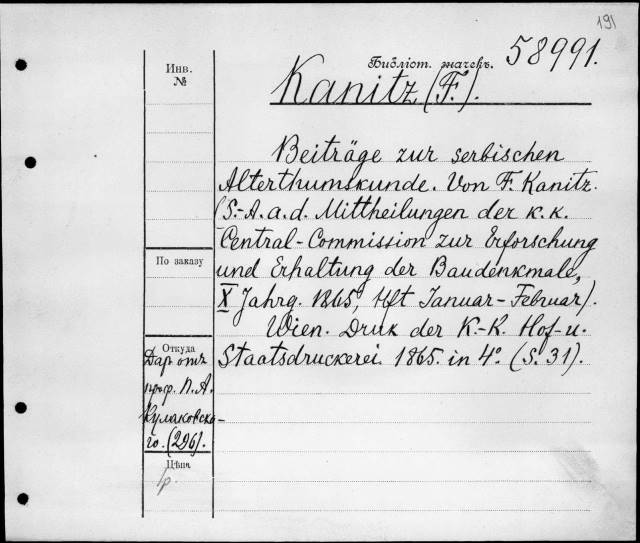 191
Библіот. значекъ. 58991.
Инв.
№
Kanitz (F.).
Beiträge zur serbischen
Alterthumskunde. Von F. Kanitz.
(S.-A. a. d. Mittheilungen der k. k.
Central-Commission zur Erforschung
und Erhaltung der Baudenkmale,
X Jahrg. 1865, Hft Januar-Februar).
Wien. Druk der K.-K. Hof- u.
Staatsdruckerei. 1865. in 4° (S. 31).
По заказу
Откуда
Даръ отъ
проф. П. А.
Кулаковска-
го. (296).
Цѣна
1р.